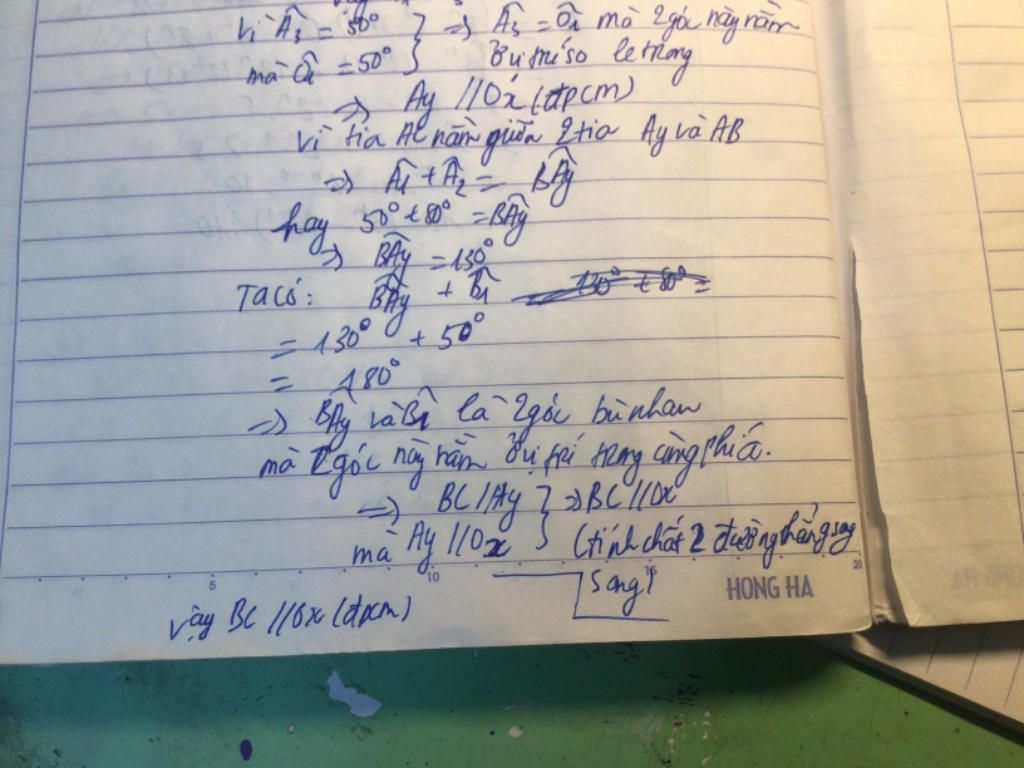 vì Â₃ = 50° } => Â₃ = Ô₁ mà 2 góc này nằm
mà Ô₁ = 50° } ở vị trí so le trong
=> Ay // Ox (đpcm)
vì tia AC nằm giữa 2 tia Ay và AB
=> Â₁ + Â₂ = BÂy
hay 50° + 80° = BÂy
=> BÂy = 130°
Ta có: BÂy + B̂₁ 130° + 80° =
= 130° + 50°
= 180°
=> BÂy và B̂₁ là 2 góc bù nhau
mà 2 góc này nằm ở vị trí trong cùng phía.
=> BC // Ay } => BC // Ox
mà Ay // Ox } (tính chất 2 đường thẳng song
song)
5 10 15 20
HONG HA
vậy BC // Ox (đpcm)